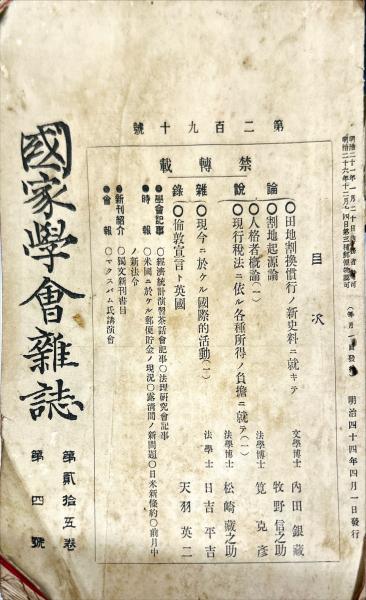 明治二十一年一月二十日遞信省認可
明治二十六年十二月四日第三種郵便物認可
(每月一回一日發行) 明治四十四年四月一日發行
第二百九十號
禁轉載
目次
論說
○田地割換慣行ノ新史料ニ就キテ 文學博士 內田銀藏
○割地起源論 牧野信之助
○人格者槪論(一) 法學博士 筧克彥
○現行稅法ニ依ル各種所得ノ負擔ニ就テ(一) 法學博士 松崎藏之助
雜錄
○現今ニ於ケル國際的活動(一) 法學士 日吉平吉
○倫敦宣言ト英國 天羽英二
●學會記事 ○經濟統計演習茶話會記事○法理硏究會記事
●時報 ○米國ニ於ケル郵便貯金ノ現況○露淸間ノ新問題○日米新條約○前月中
ノ新法令
●新刊紹介 ○獨文新刊書目
●會報 ○マクスバム氏講演會
國家學會雜誌
第貳拾五卷
第四號